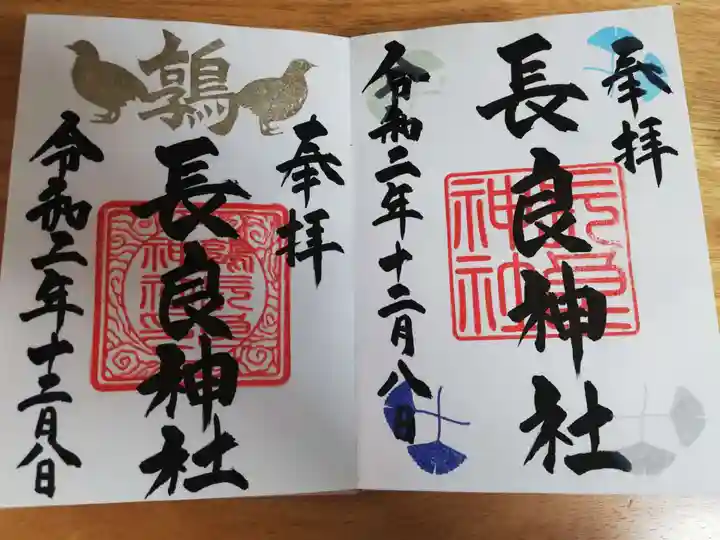 奉拝
長良神社
長良
神社
令和二年十二月八日
鶉
奉拝
長良神社
令和二年十二月八日